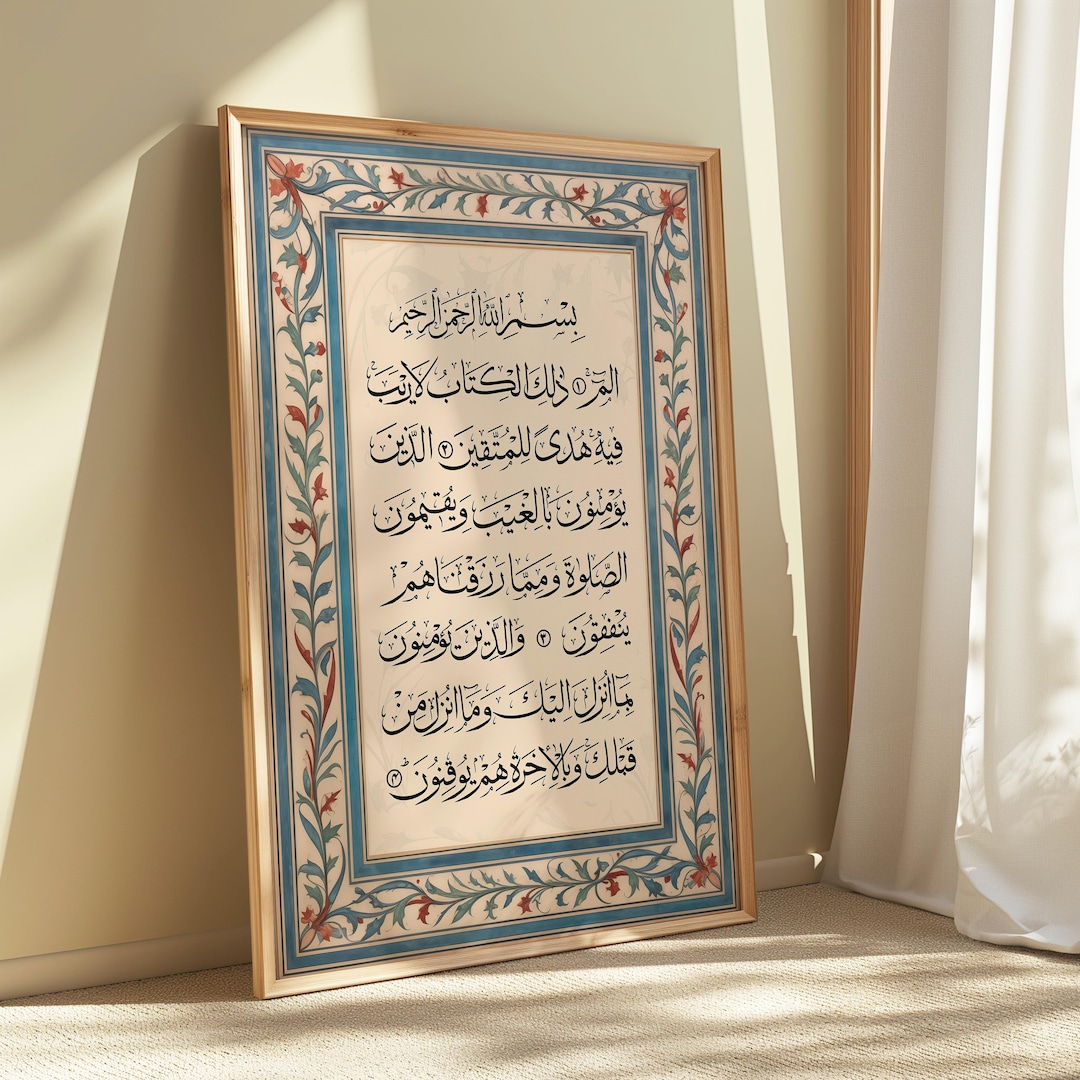 بِسْمِ اللّٰهِ الرَّحْمٰنِ الرَّحِيْمِ
الٓمّٓ ۝١ ذٰلِكَ الْكِتَابُ لَا رَيْبَ
فِيْهِ هُدًى لِلْمُتَّقِيْنَ ۝٢ الَّذِيْنَ
يُؤْمِنُوْنَ بِالْغَيْبِ وَيُقِيْمُوْنَ
الصَّلٰوةَ وَمِمَّا رَزَقْنَاهُمْ
يُنْفِقُوْنَ ۝٣ وَالَّذِيْنَ يُؤْمِنُوْنَ
بِمَا اُنْزِلَ اِلَيْكَ وَمَا اُنْزِلَ مِنْ
قَبْلِكَ وَبِالْاٰخِرَةِ هُمْ يُوْقِنُوْنَ ۝٤